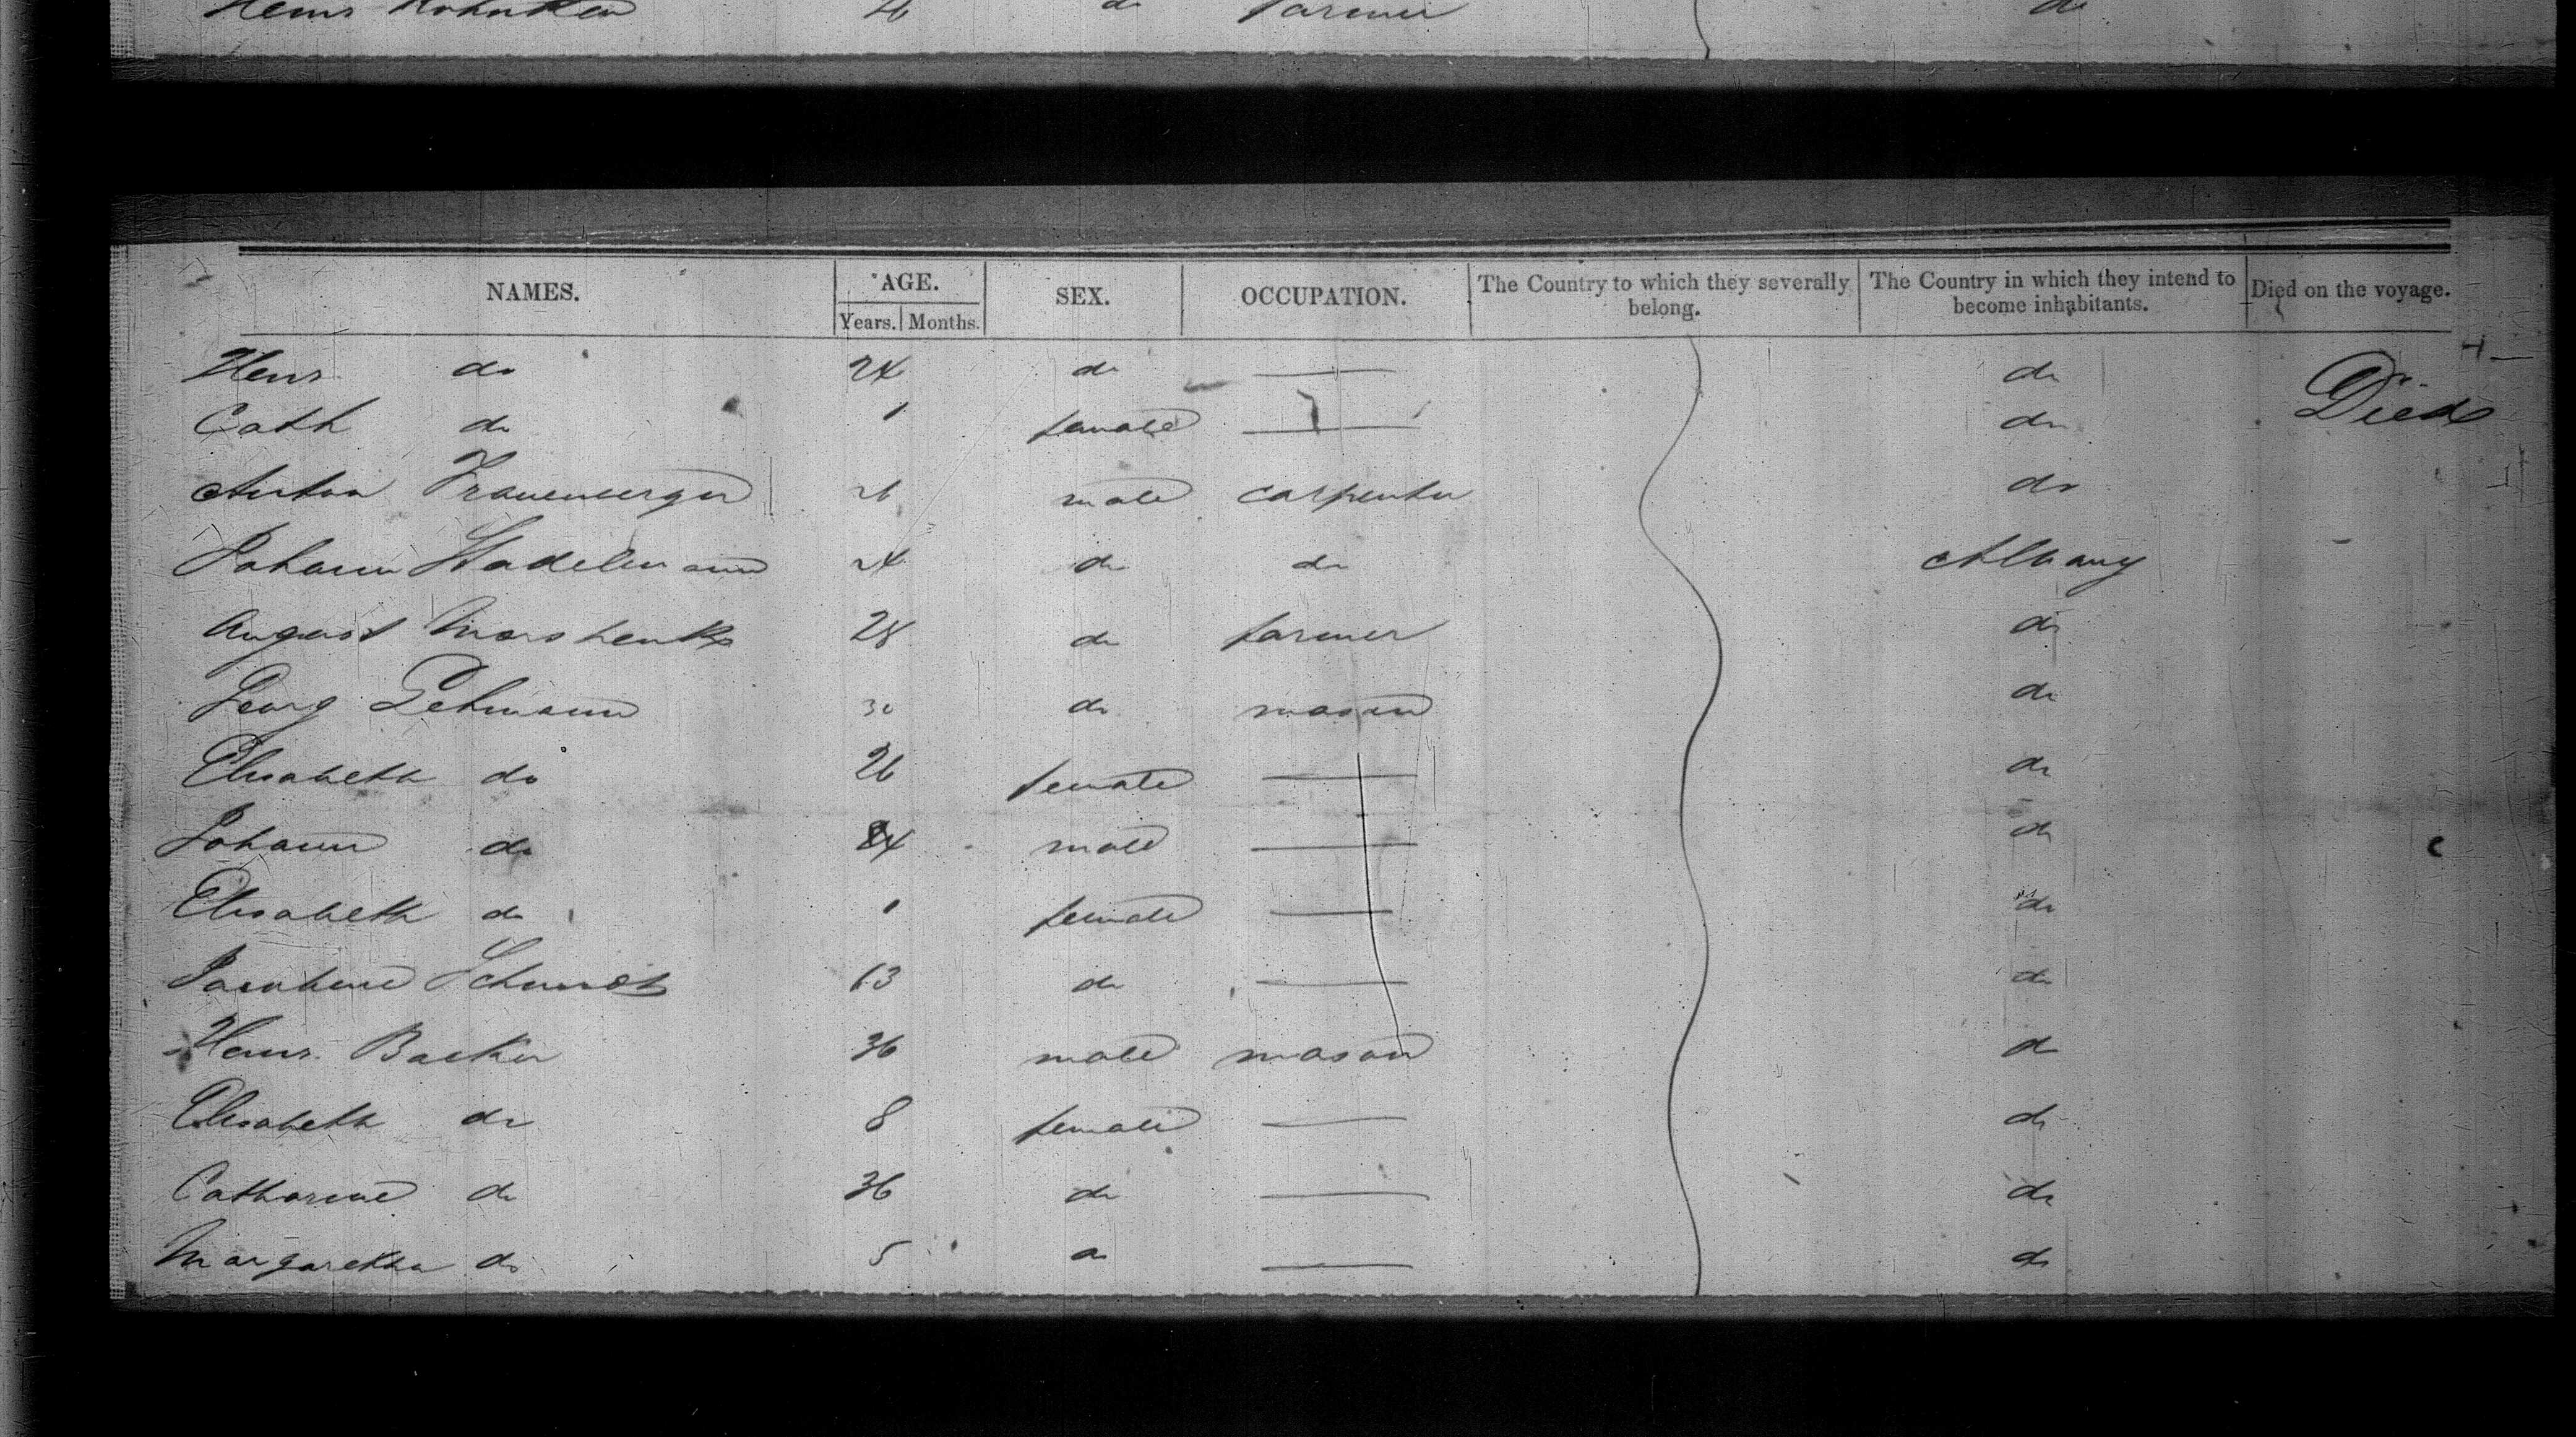 farmer do
NAMES. AGE. Years. Months. SEX. OCCUPATION. The Country to which they severally belong. The Country in which they intend to become inhabitants. Died on the voyage.
Henr do 24 do — do
Cath do 1 female — do Died
Anton 26 male carpenter do
Johann Stadelmann 24 do do Albany
August 28 do farmer do
Georg Lehmann 30 do mason do
Elisabeth do 26 female — do
Johann do male — do
Elisabeth do 1 female — do
Schmidt 13 do — do
Henr. Backer 36 male mason do
Elisabeth do 8 female — do
Catharine do 36 do — do
Margaretha do 5 do — do